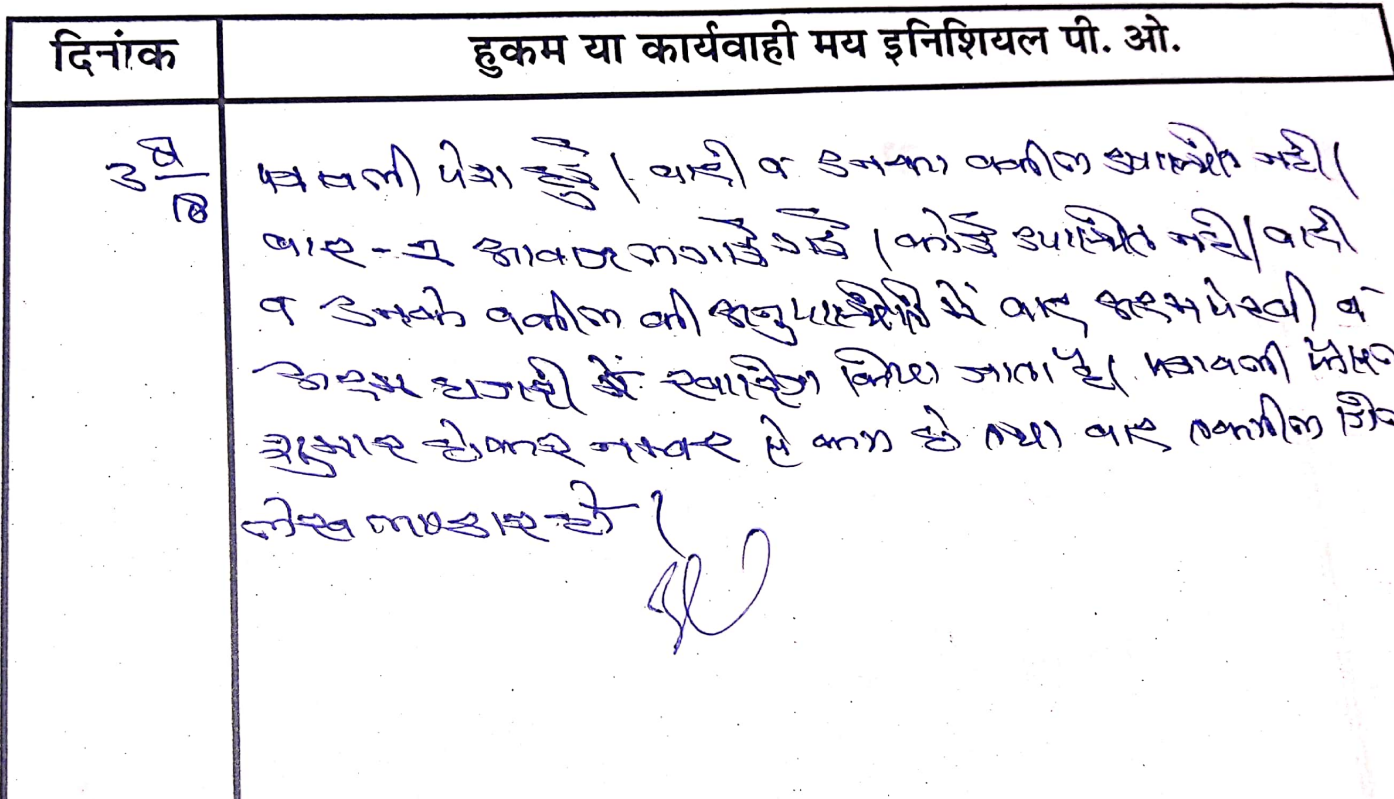 दिनांक
हुकम या कार्यवाही मय इनिशियल पी. ओ.
पत्रावली पेश हुई। वादी व उनका वकील उपस्थित नहीं।
बार-२ आवाज लगाई गई। कोई उपस्थित नहीं। वादी
व उनके वकील की अनुपस्थिति में वाद अदम पेरवी व
अदम हाजरी में खारिज किया जाता है। पत्रावली फैसल
शुमार होकर नम्बर से कम हो तथा वाद तकमील
दफ्तर हो।